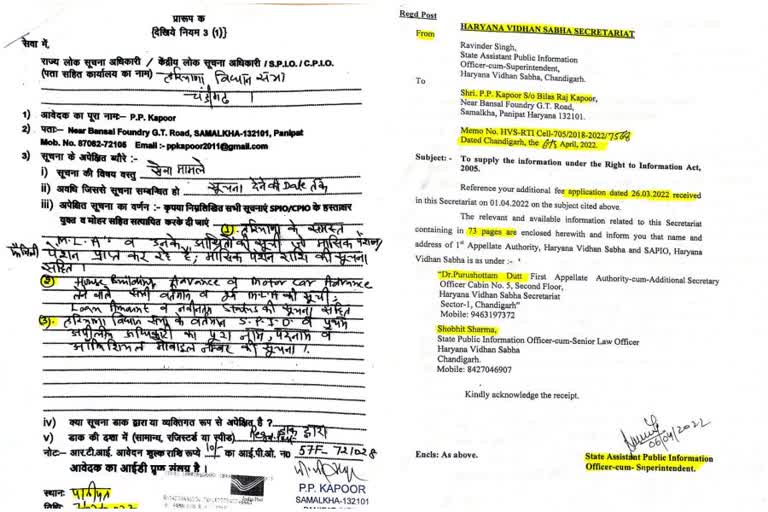 प्रारूप क
{देखिये नियम 3 (1)}
सेवा में,
राज्य लोक सूचना अधिकारी / केंद्रीय लोक सूचना अधिकारी / S.P.I.O./ C.P.I.O.
(पता सहित कार्यालय का नाम) हरियाणा विधान सभा
चंडीगढ़
1) आवेदक का पूरा नामः- P.P. Kapoor
2) पताः- Near Bansal Foundry G.T. Road, SAMALKHA-132101, Panipat
Mob. No. 87082-72105 Email :- ppkapoor2011@gmail.com
3) सूचना के अपेक्षित ब्यौरे :-
i) सूचना की विषय वस्तु सेवा मामले
ii) अवधि जिससे सूचना सम्बन्धित हो सूचना देने की Date तक
iii) अपेक्षित सूचना का वर्णन :- कृपया निम्नलिखित सभी सूचनाएं SPIO/CPIO के हस्ताक्षर
युक्त व मोहर सहित सत्यापित करके दी जाएं (1) हरियाणा के समस्त
M.L.A's व उनके आश्रितों की सूची जो मासिक पेंशन/
फैमिली पेंशन प्राप्त कर रहे हैं, मासिक पेंशन राशि की सूचना
सहित
(2) House Building Advance व Motor Car Advance
लेने वाले सभी वर्तमान व पूर्व M.L.A की सूची,
Loan Amount व नवीनतम Status की सूचना सहित
(3). हरियाणा विधान सभा के वर्तमान S.P.I.O. व प्रथम
अपीलीय अधिकारी का पूरा नाम, पदनाम व
ऑफिशियल मोबाइल नम्बर की सूचना।
iv) क्या सूचना डाक द्वारा या व्यक्तिगत रूप से अपेक्षित है ? डाक द्वारा
v) डाक की दशा में (सामान्य, रजिस्टर्ड या स्पीड)
नोटः- आर.टी.आई. आवेदन शुल्क राशि रूपये 10/- का आई.पी.ओ. no 57F-721028
आवेदक का आईडी प्रूफ संलग्न है ।
P.P. KAPOOR
SAMALKHA-132101
स्थानः पानीपत
Regd Post
HARYANA VIDHAN SABHA SECRETARIAT
From
Ravinder Singh,
State Assistant Public Information
Officer-cum-Superintendent,
Haryana Vidhan Sabha, Chandigarh.
To
Shri. P.P. Kapoor S/o Bilas Raj Kapoor,
Near Bansal Foundry G.T. Road,
Samalkha, Panipat Haryana 132101.
Memo No. HVS-RTI Cell-705/2018-2022/7568
Dated Chandigarh, the 6th April, 2022.
Subject: - To supply the information under the Right to Information Act,
2005.
Reference your additional fee application dated 26.03.2022 received
in this Secretariat on 01.04.2022 on the subject cited above.
The relevant and available information related to this Secretariat
containing in 73 pages are enclosed herewith and inform you that name and
address of 1st Appellate Authority, Haryana Vidhan Sabha and SAPIO, Haryana
Vidhan Sabha is as under: -
"Dr.Purushottam Dutt First Appellate Authority-cum-Additional Secretary
Officer Cabin No. 5, Second Floor,
Haryana Vidhan Sabha Secretariat
Sector-1, Chandigarh"
Mobile: 9463197372
Shobhit Sharma,
State Public Information Officer-cum-Senior Law Officer
Haryana Vidhan Sabha
Chandigarh.
Mobile: 8427046907
Kindly acknowledge the receipt.
06/04/2022
Encls: As above.
State Assistant Public Information
Officer-cum- Superintendent.